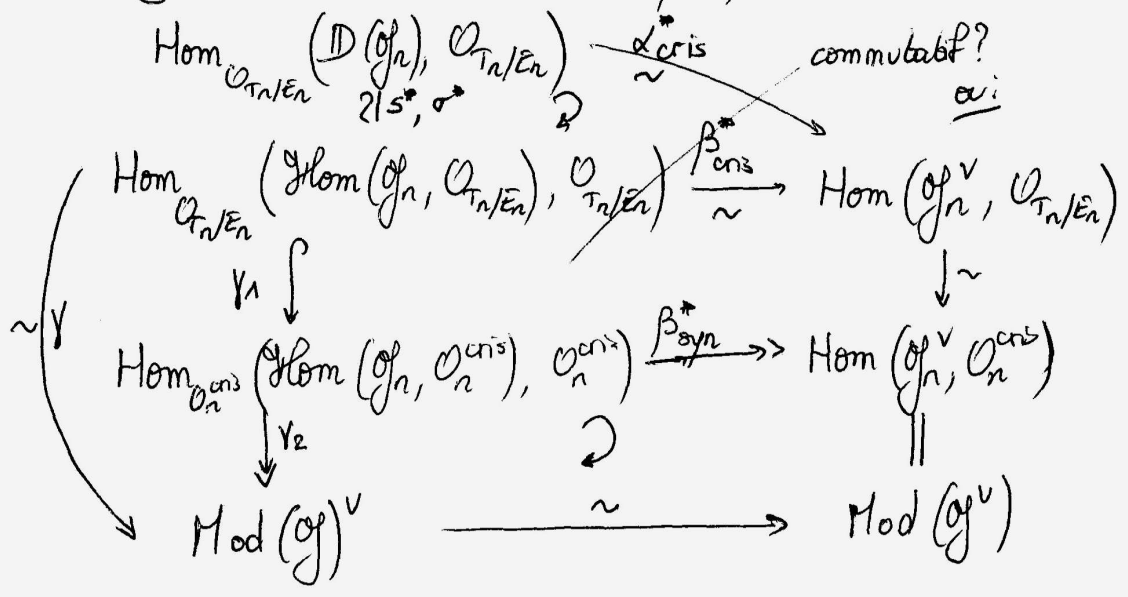 Hom_{O_{T_n/E_n}} (𝔻(𝒢_n), O_{T_n/E_n}) α*_cris ~ commutatif?
≀| s*, σ* oui
Hom_{O_{T_n/E_n}} (ℋom(𝒢_n, O_{T_n/E_n}), O_{T_n/E_n}) β*_cris ~ Hom(𝒢_n^∨, O_{T_n/E_n})
~ γ γ1 ~
Hom_{O_n^cris} (ℋom(𝒢_n, O_n^cris), O_n^cris) β*_syn Hom(𝒢_n^∨, O_n^cris)
γ2 ||
Mod(𝒢)^∨ ~ Mod(𝒢^∨)